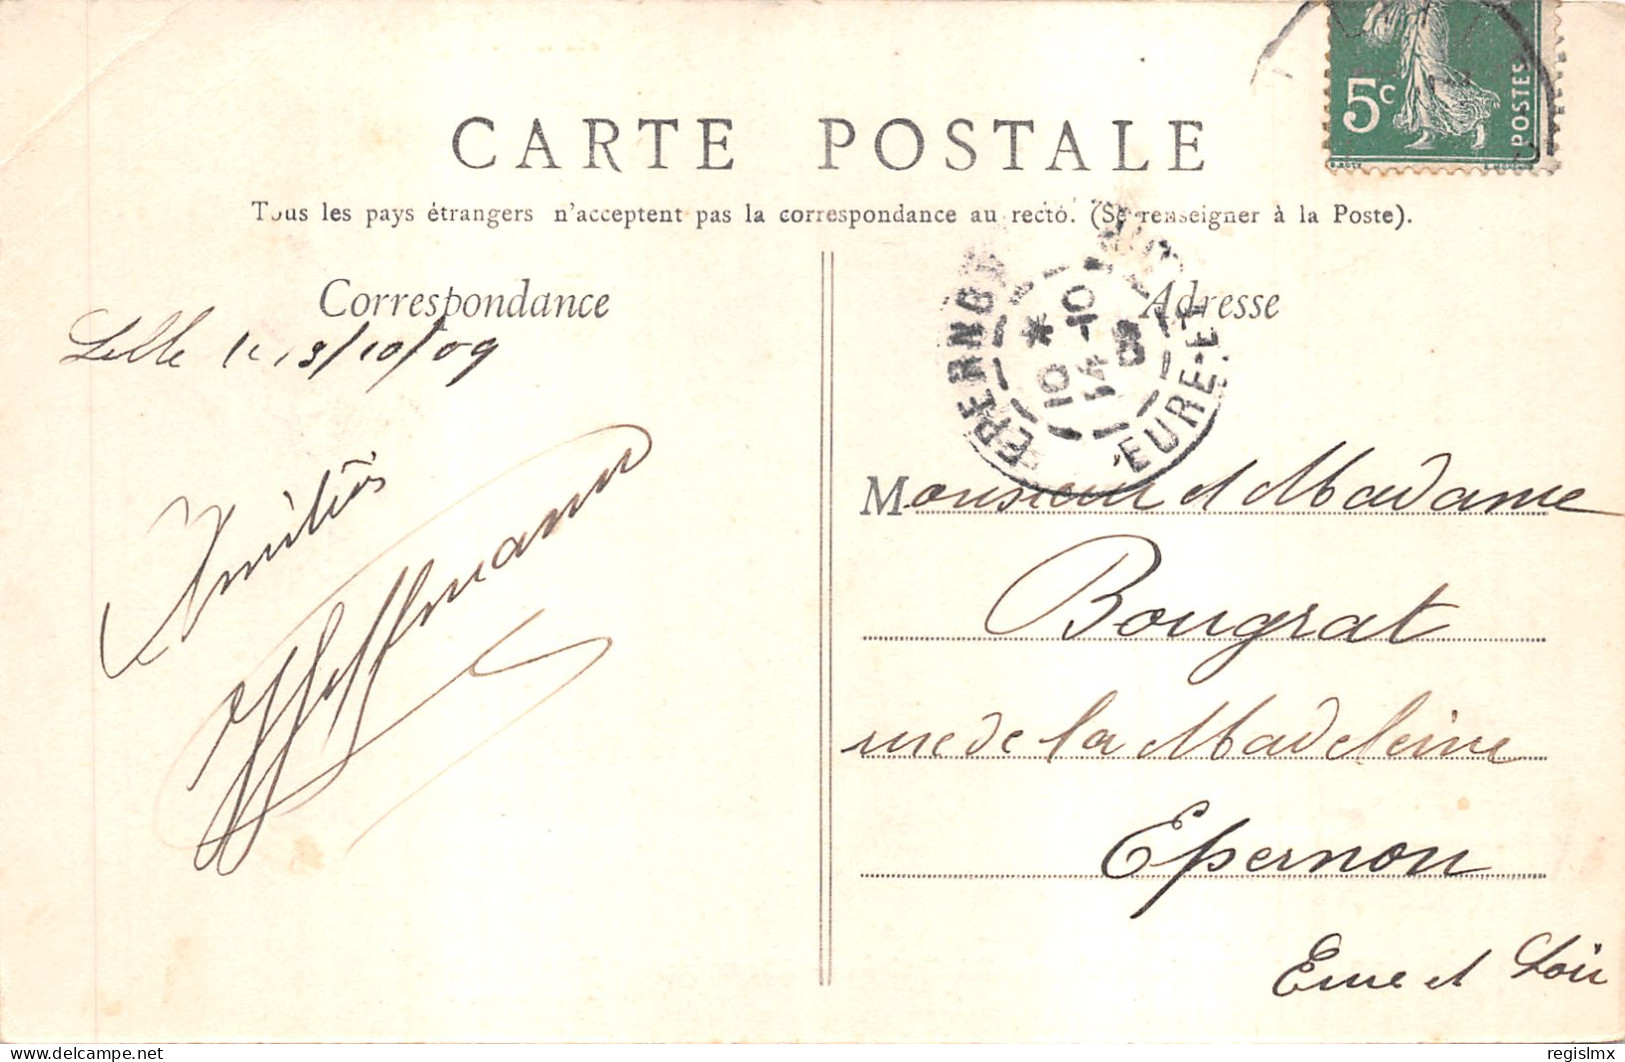 CARTE POSTALE
Tous les pays étrangers n'acceptent pas la correspondance au recto. (Se renseigner à la Poste).
5c
POSTES
Correspondance
Adresse
Lille le 13/10/09
Amitiés
Hoffmann
EPERNON
10 * 10
14 -10
EURE-ET
Monsieur et Madame
Bougrat
rue de la Madeleine
Epernon
Eure et Loir
delcampe.net
regislmx